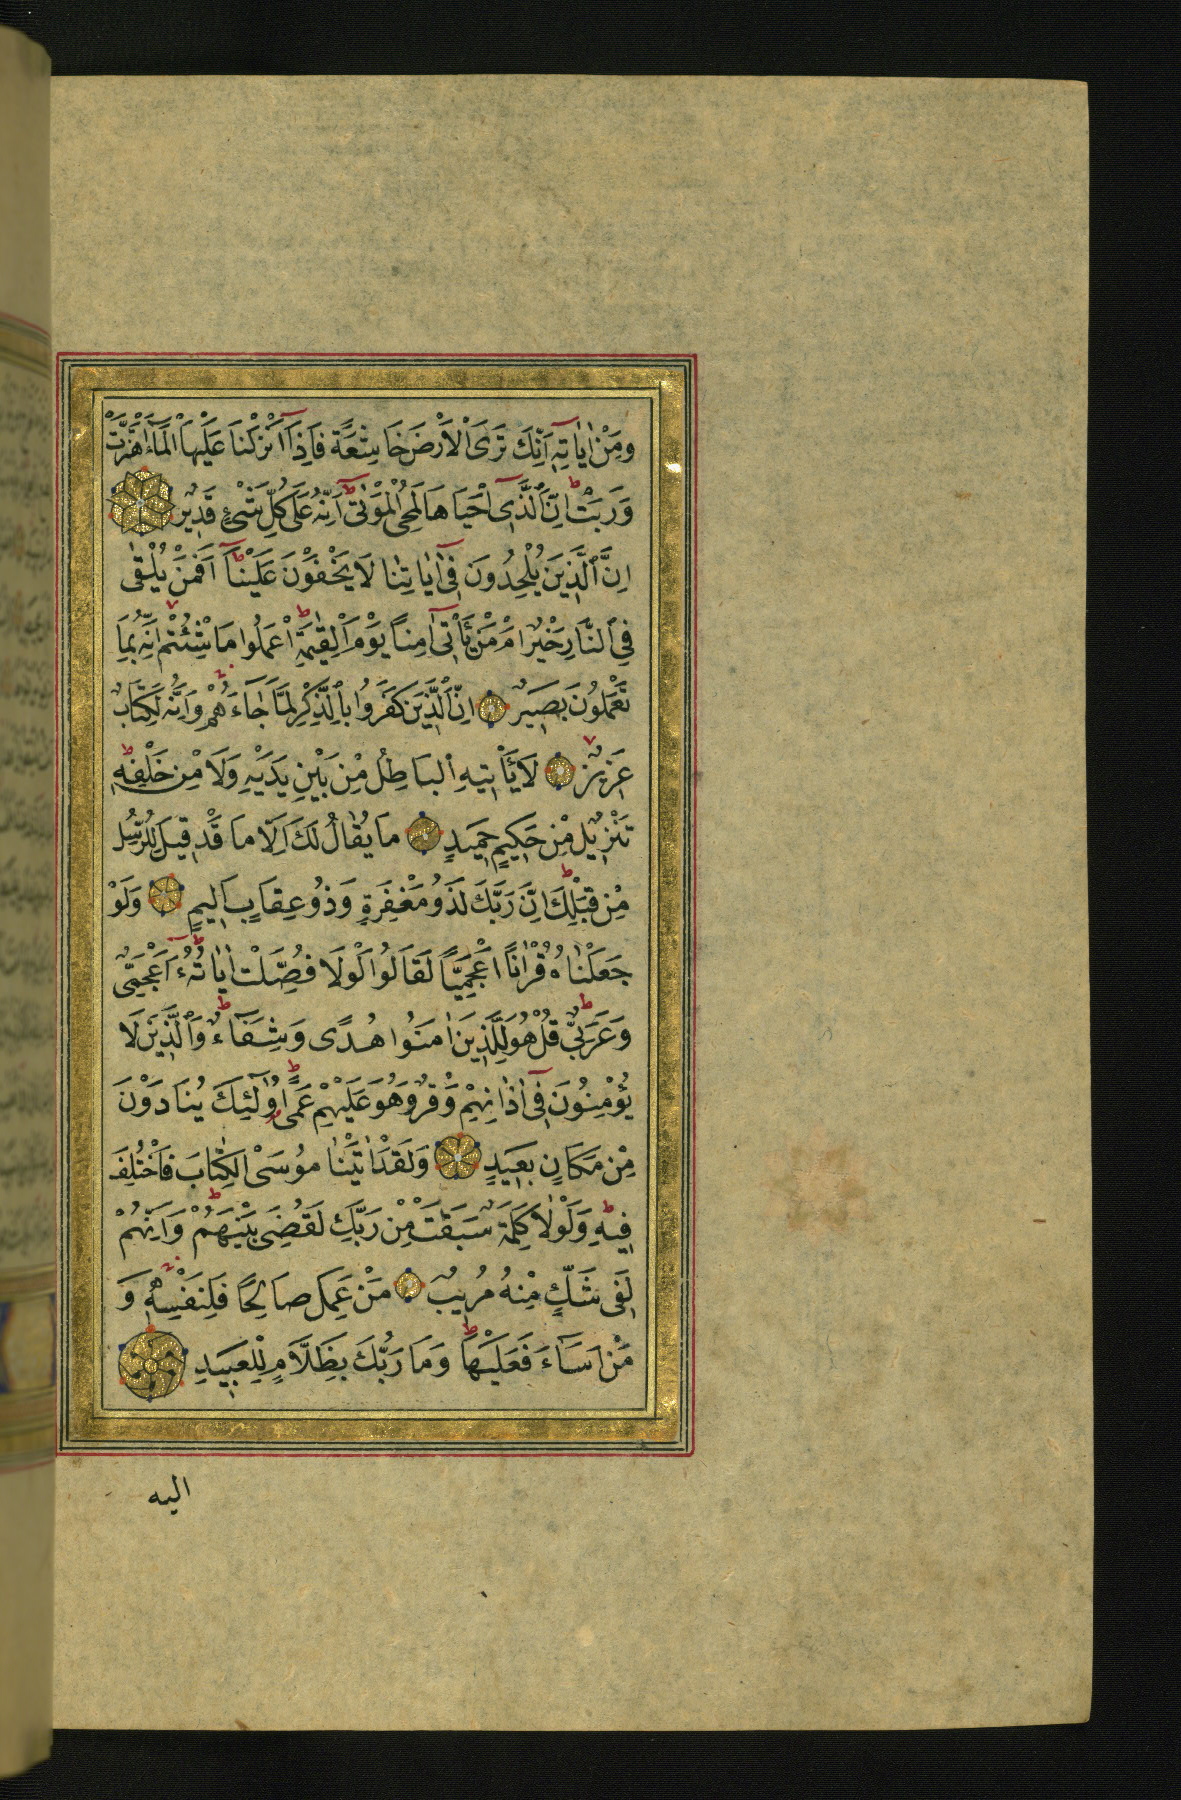 وَمِنْ اٰيَاتِهٖٓ اَنَّكَ تَرَى الْاَرْضَ خَاشِعَةً فَاِذَٓا اَنْزَلْنَا عَلَيْهَا الْمَٓاءَ اهْتَزَّتْ
وَرَبَتْ ط اِنَّ الَّذٖٓى اَحْيَاهَا لَمُحْىِ الْمَوْتٰى ط اِنَّهُ عَلٰى كُلِّ شَىْءٍ قَدٖيرٌ
اِنَّ الَّذٖينَ يُلْحِدُونَ فٖٓى اٰيَاتِنَا لَا يَخْفَوْنَ عَلَيْنَا ط اَفَمَنْ يُلْقٰى
فِى النَّارِ خَيْرٌ اَمْ مَنْ يَأْتٖٓى اٰمِنًا يَوْمَ الْقِيٰمَةِ ط اِعْمَلُوا مَا شِئْتُمْ اِنَّهُ بِمَا
تَعْمَلُونَ بَصٖيرٌ اِنَّ الَّذٖينَ كَفَرُوا بِالذِّكْرِ لَمَّا جَٓاءَهُمْ وَاِنَّهُ لَكِتَابٌ
عَزٖيزٌ لَا يَأْتٖيهِ الْبَاطِلُ مِنْ بَيْنِ يَدَيْهِ وَلَا مِنْ خَلْفِهٖ ط
تَنْزٖيلٌ مِنْ حَكٖيمٍ حَمٖيدٍ مَا يُقَالُ لَكَ اِلَّا مَا قَدْ قٖيلَ لِلرُّسُلِ
مِنْ قَبْلِكَ ط اِنَّ رَبَّكَ لَذُو مَغْفِرَةٍ وَذُو عِقَابٍ اَلٖيمٍ وَلَوْ
جَعَلْنَاهُ قُرْاٰنًا اَعْجَمِيًّا لَقَالُوا لَوْلَا فُصِّلَتْ اٰيَاتُهُ ط ءَاَعْجَمِىٌّ
وَعَرَبِىٌّ ط قُلْ هُوَ لِلَّذٖينَ اٰمَنُوا هُدًى وَشِفَٓاءٌ ط وَالَّذٖينَ لَا
يُؤْمِنُونَ فٖٓى اٰذَانِهِمْ وَقْرٌ وَهُوَ عَلَيْهِمْ عَمًى ط اُولٰٓئِكَ يُنَادَوْنَ
مِنْ مَكَانٍ بَعٖيدٍ وَلَقَدْ اٰتَيْنَا مُوسَى الْكِتَابَ فَاخْتُلِفَ
فٖيهِ ط وَلَوْلَا كَلِمَةٌ سَبَقَتْ مِنْ رَبِّكَ لَقُضِىَ بَيْنَهُمْ ط وَاِنَّهُمْ
لَفٖى شَكٍّ مِنْهُ مُرٖيبٍ مَنْ عَمِلَ صَالِحًا فَلِنَفْسِهٖ وَ
مَنْ اَسَٓاءَ فَعَلَيْهَا ط وَمَا رَبُّكَ بِظَلَّامٍ لِلْعَبٖيدِ
اليه